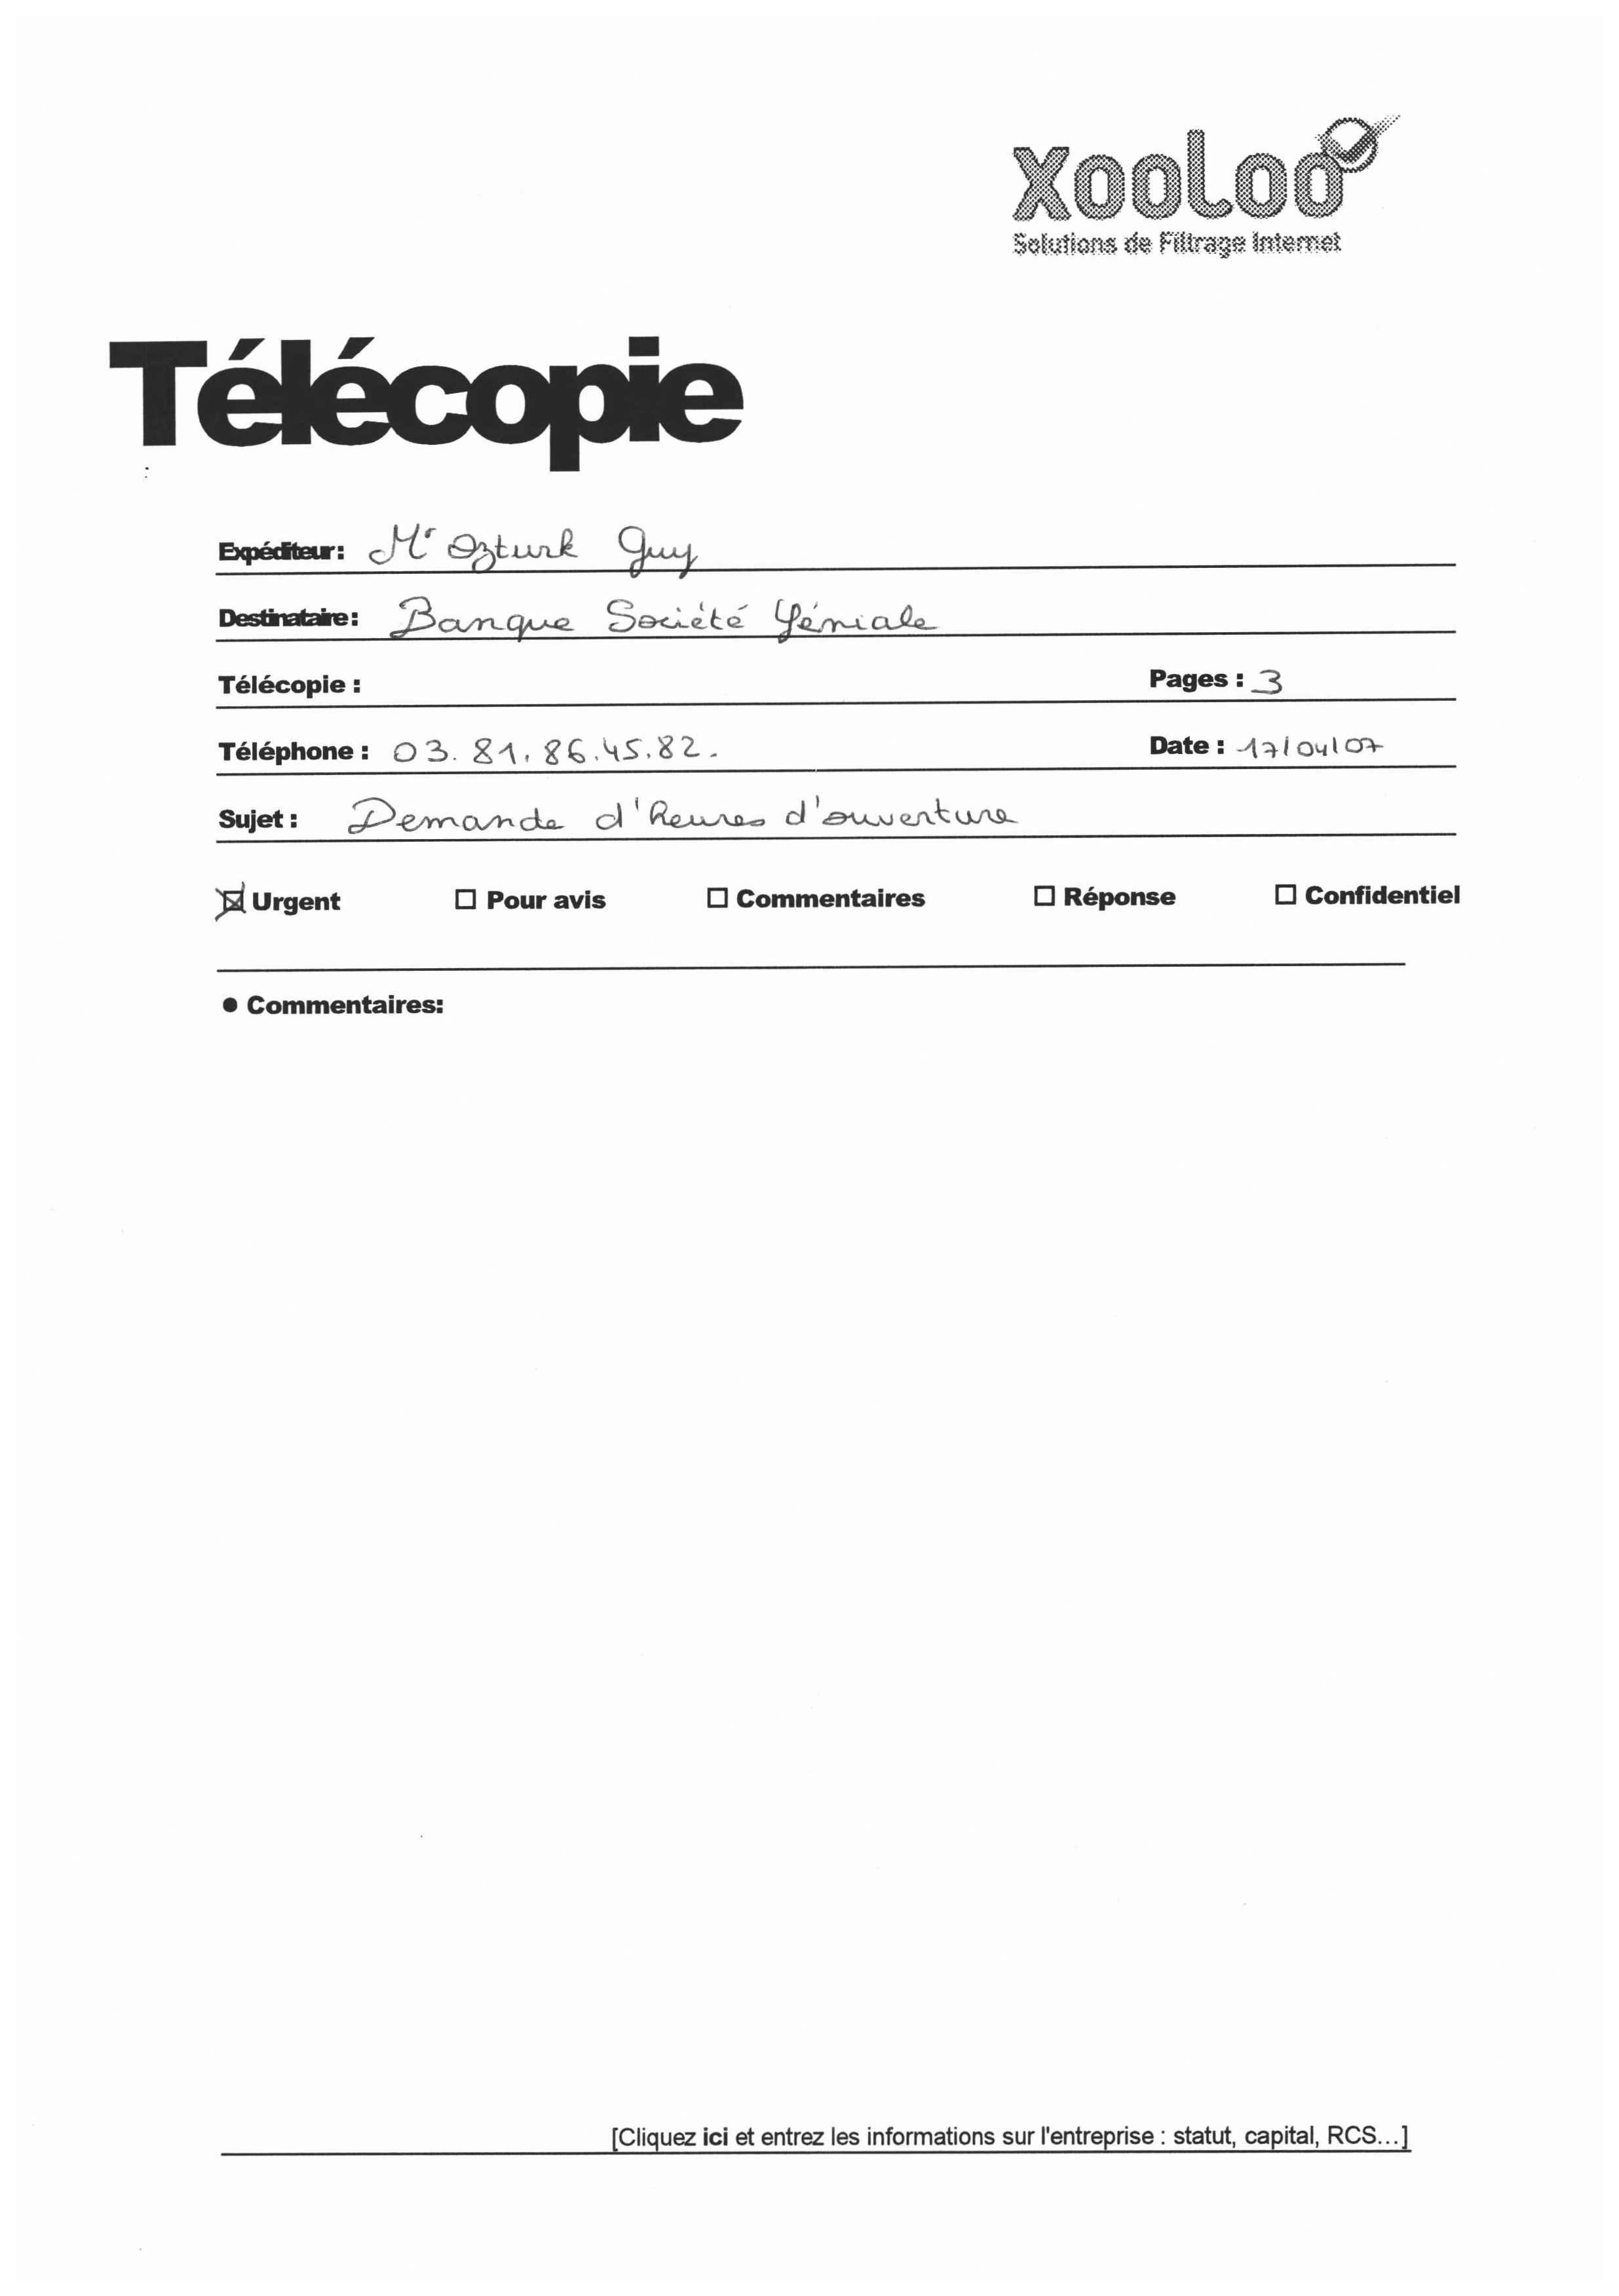 xooloo
Solutions de Filtrage Internet
Télécopie
:
Expéditeur: Mr Ozturk Guy
Destinataire: Banque Société Géniale
Télécopie : Pages : 3
Téléphone : 03.81.86.45.82. Date : 17/04/07
Sujet : Demande d'heures d'ouverture
☒ Urgent ☐ Pour avis ☐ Commentaires ☐ Réponse ☐ Confidentiel
● Commentaires:
[Cliquez ici et entrez les informations sur l'entreprise : statut, capital, RCS...]